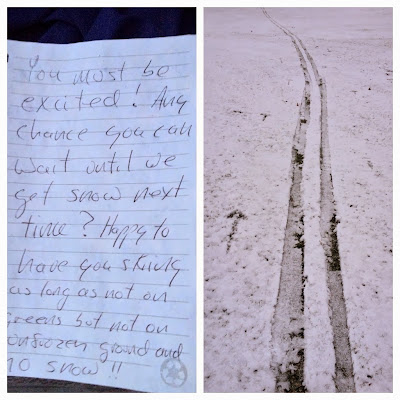 You must be
excited! Any
chance you can
wait until we
get snow next
time? Happy to
have you skiing
as long as not on
greens but not on
unfrozen ground and
no snow!!